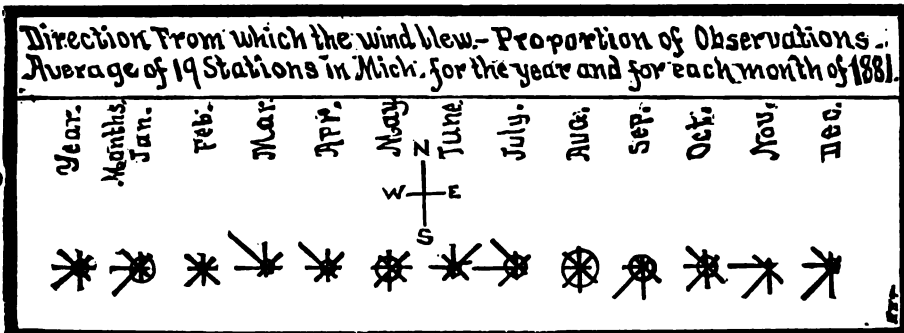 Direction From which the wind blew.- Proportion of Observations.
Average of 19 Stations in Mich. for the year and for each month of 1881.
Year.
Months.
Jan.
Feb.
Mar.
Apr.
May
June
July.
Aug.
Sep.
Oct.
Nov.
Dec.
N
W E
S